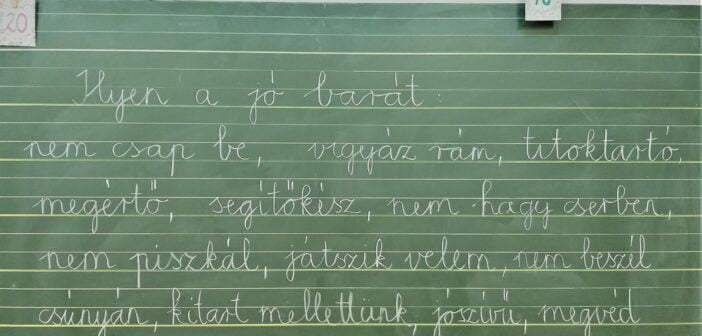 20
Ilyen a jó barát:
nem csap be, vigyáz rám, titoktartó,
megértő, segítőkész, nem hagy cserben,
nem piszkál, játszik velem, nem beszél
csúnyán, kitart mellettünk, jószívű, megvéd